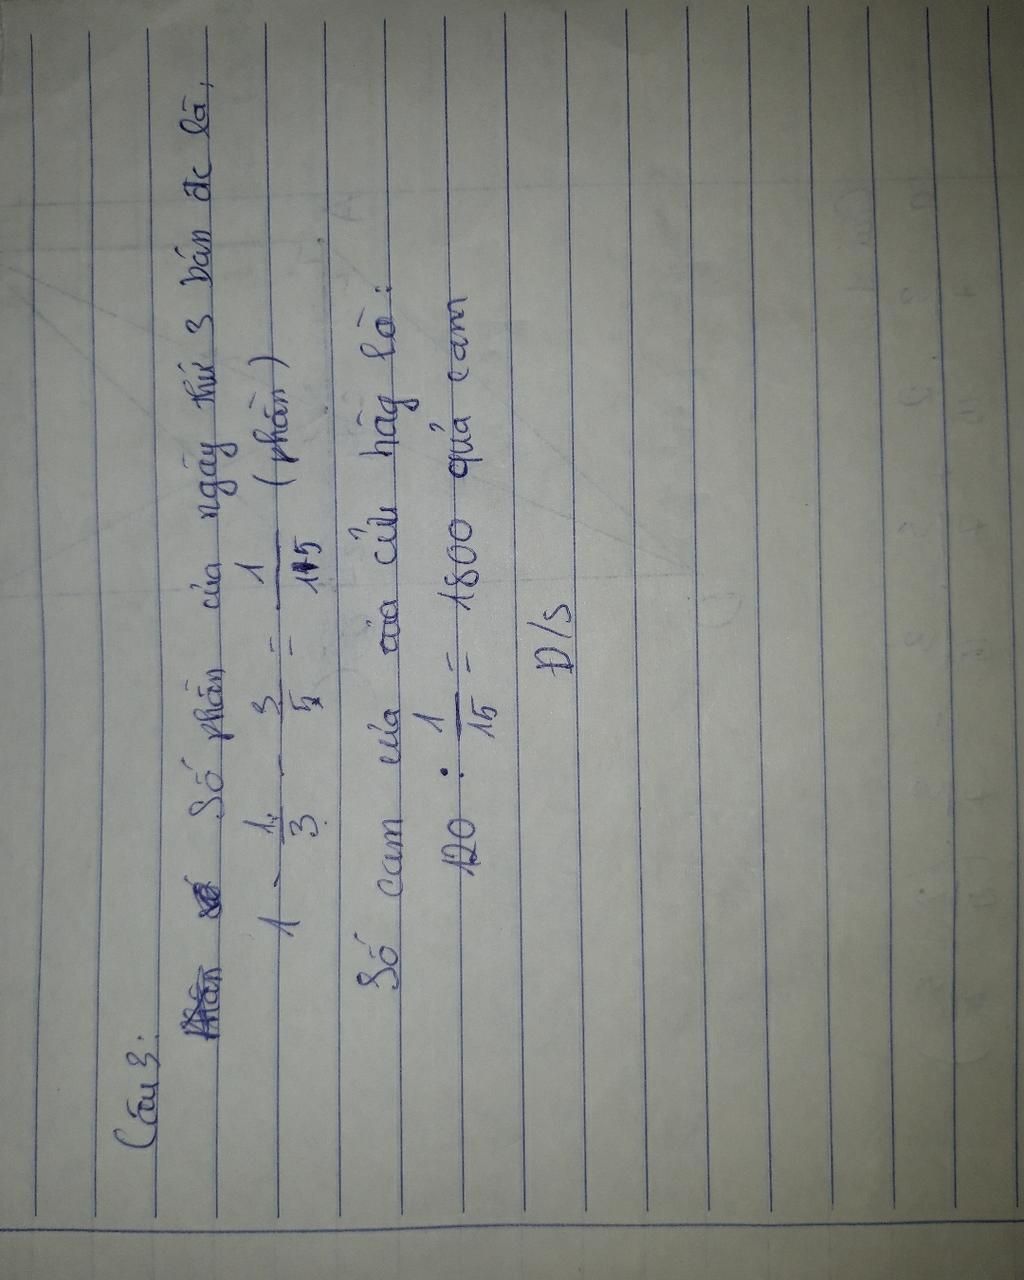 Câu 3:
Số phần của ngày thứ 3 bán đc là,
1 - 1/3 - 3/5 = 1/15 (phần)
Số cam của của cửa hàg là:
120 : 1/15 = 1800 quả cam
Đ/s